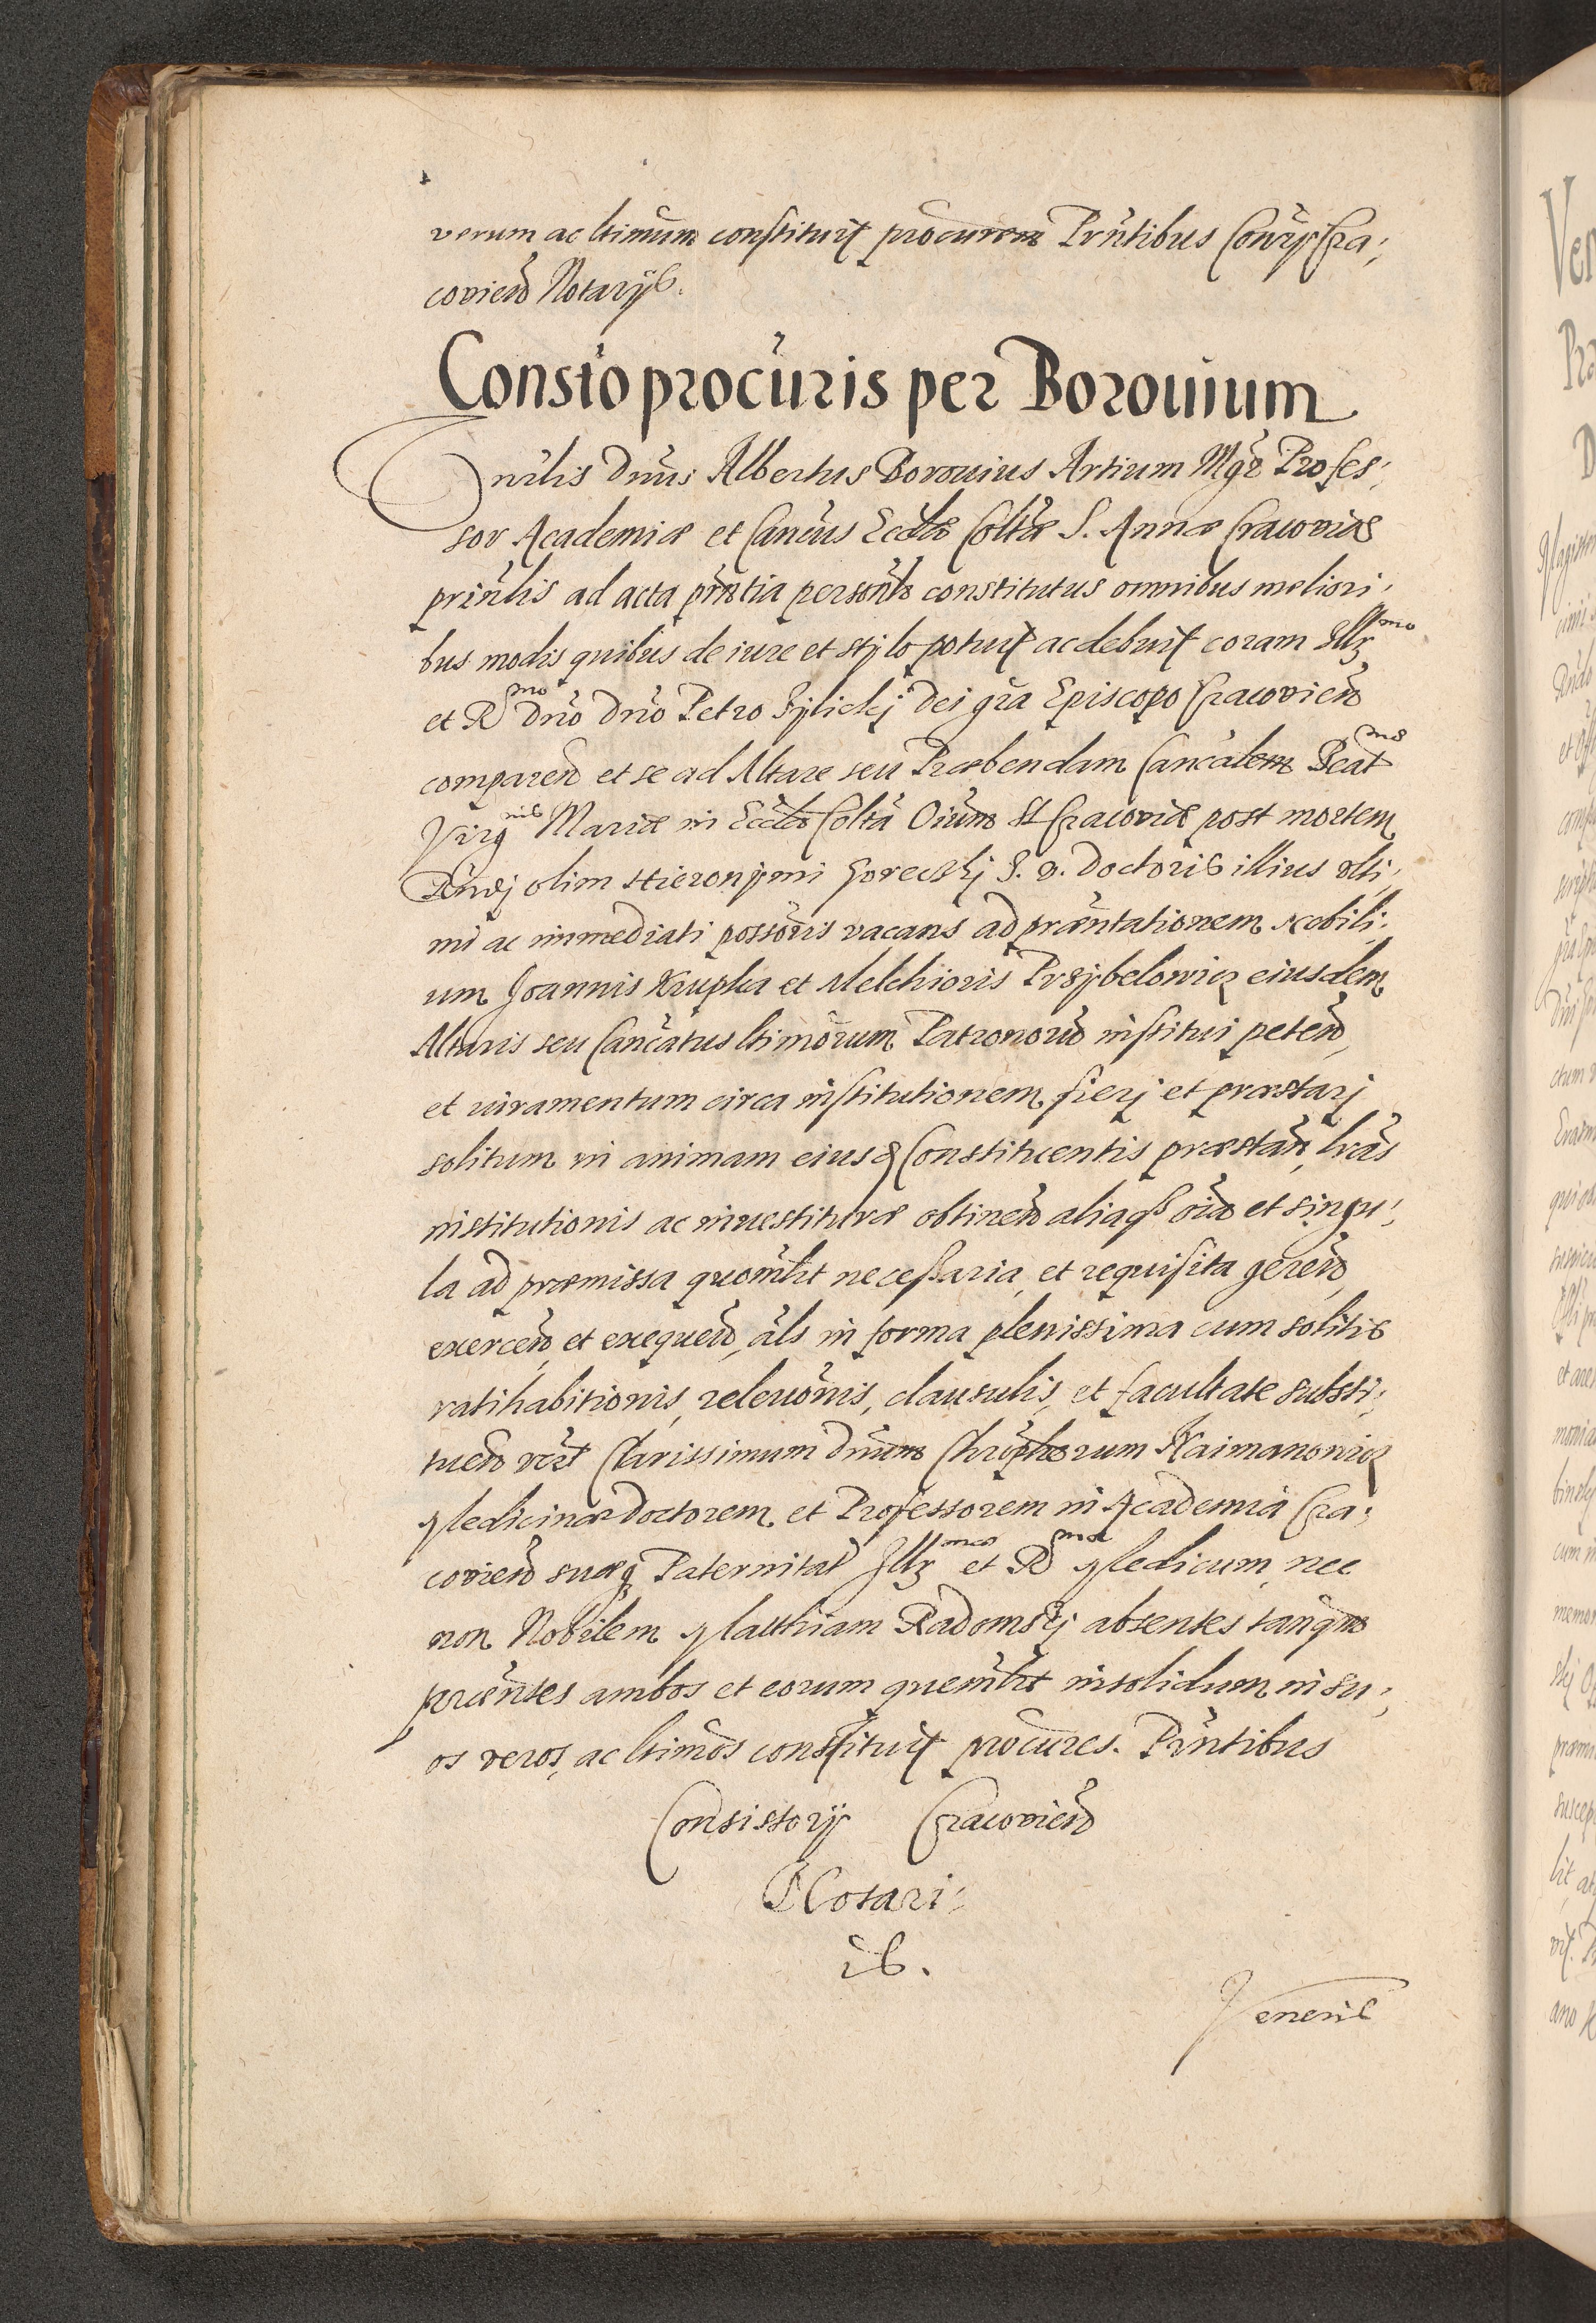 verum ac ltimum constituit procurem Prntibus Conrÿ Cra,
covien Notarÿs.
Constio procuris per Borovium
Vnrlis Dnus Albertus Borovius Artium Mgr Profes,
sor Academiæ et Cancus Eccle Coltæ S. Annæ Cracoviæ
prinlis ad acta prntia personlr constitutus omnibus meliori,
bus modis quibus de iure et stÿlo potuit ac debuit coram Illr mo
et R mo Dno Dno Petro Tÿlickj Dei gra Episcopo Cracovien
comparen et se ad Altare seu Præbendam Cancalem Beat mæ
Virg nis Mariæ in Eccle Colta Oium St Cracoviæ post mortem
Rndj olim Hieronÿmi Goreczkj J. V. Doctoris illius vlti,
mi ac immediati possoris vacans ad præntationem Nobili,
um Joannis Krupka et Melchioris Przÿbelowicz eiusdem
Altaris seu Cancatus ltimorum Patronorum institui peten,
et iuramentum circa institutionem fierj et præstarj
solitum in animam eiusd Constituentis præstan, lras
institutionis ac investituræ obtinen aliaqs oia et singu,
la ad præmissa quomlbt necessaria, et requisita geren,
exercen, et exequen, als in forma plenissima cum solitis
ratihabitionis, relevonis, clausulis, et facultate substi,
tuen vert Clarissimum Dnum Chrophorum Naimanowicz
Medicinæ Doctorem et Professorem in Academia Cra,
covien suæq Paternitat Illr mæ et R mæ Medicum, nec
non Nobilem Matthiam Radomskj absentes tanqm
præntes ambos et eorum quemlbt insolidum in su,
os veros, ac ltimos constituit procures. Prntibus
Consistorÿ Cracovien
Notari,
is.
Veneril